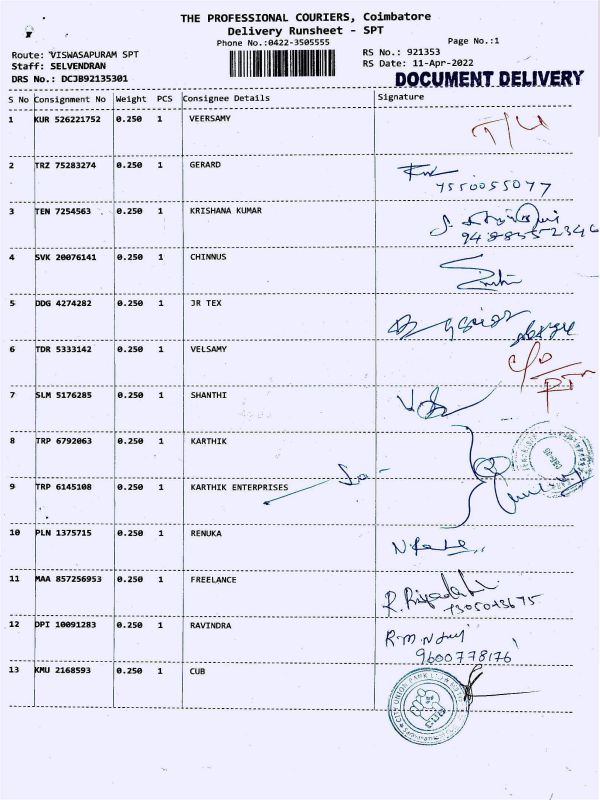 THE PROFESSIONAL COURIERS, Coimbatore
Delivery Runsheet - SPT
Phone No.:0422-3505555
Page No.:1
Route: VISWASAPURAM SPT
RS No.: 921353
Staff: SELVENDRAN
RS Date: 11-Apr-2022
DRS No.: DCJB92135301
DOCUMENT DELIVERY
S No Consignment No Weight PCS Consignee Details Signature
1 KUR 526221752 0.250 1 VEERSAMY
2 TRZ 75283274 0.250 1 GERARD
7550055077
3 TEN 7254563 0.250 1 KRISHANA KUMAR
4 SVK 20076141 0.250 1 CHINNUS
5 DDG 4274282 0.250 1 JR TEX
6 TDR 5333142 0.250 1 VELSAMY
7 SLM 5176285 0.250 1 SHANTHI
8 TRP 6792063 0.250 1 KARTHIK
9 TRP 6145108 0.250 1 KARTHIK ENTERPRISES
10 PLN 1375715 0.250 1 RENUKA
11 MAA 857256953 0.250 1 FREELANCE
12 DPI 10091283 0.250 1 RAVINDRA
9600778176
13 KMU 2168593 0.250 1 CUB
CITY UNION BANK LTD
CUB